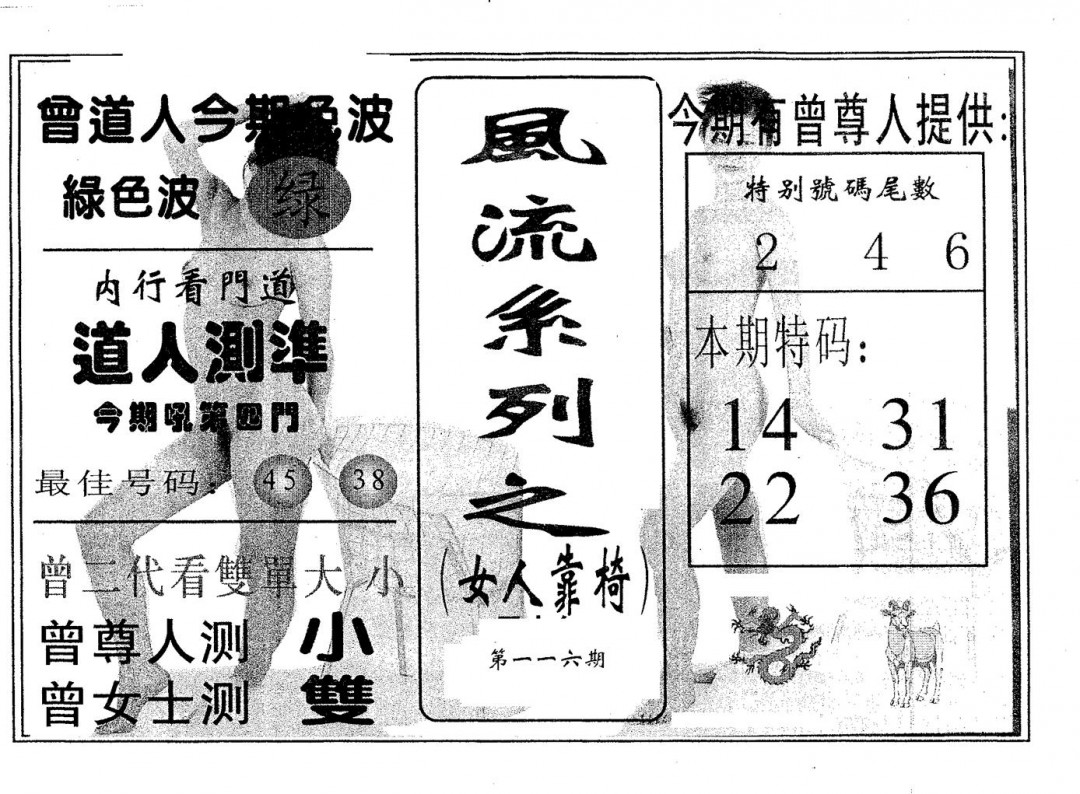 曾道人今期色波
綠色波 绿
内行看門道
道人測準
今期吼第四門
最佳号码: 45 38
曾二代看雙單大小
曾尊人测 小
曾女士测 雙
風流系列之
(女人靠椅)
第一一六期
今期有曾尊人提供:
特别號碼尾數
2 4 6
本期特码:
14 31
22 36